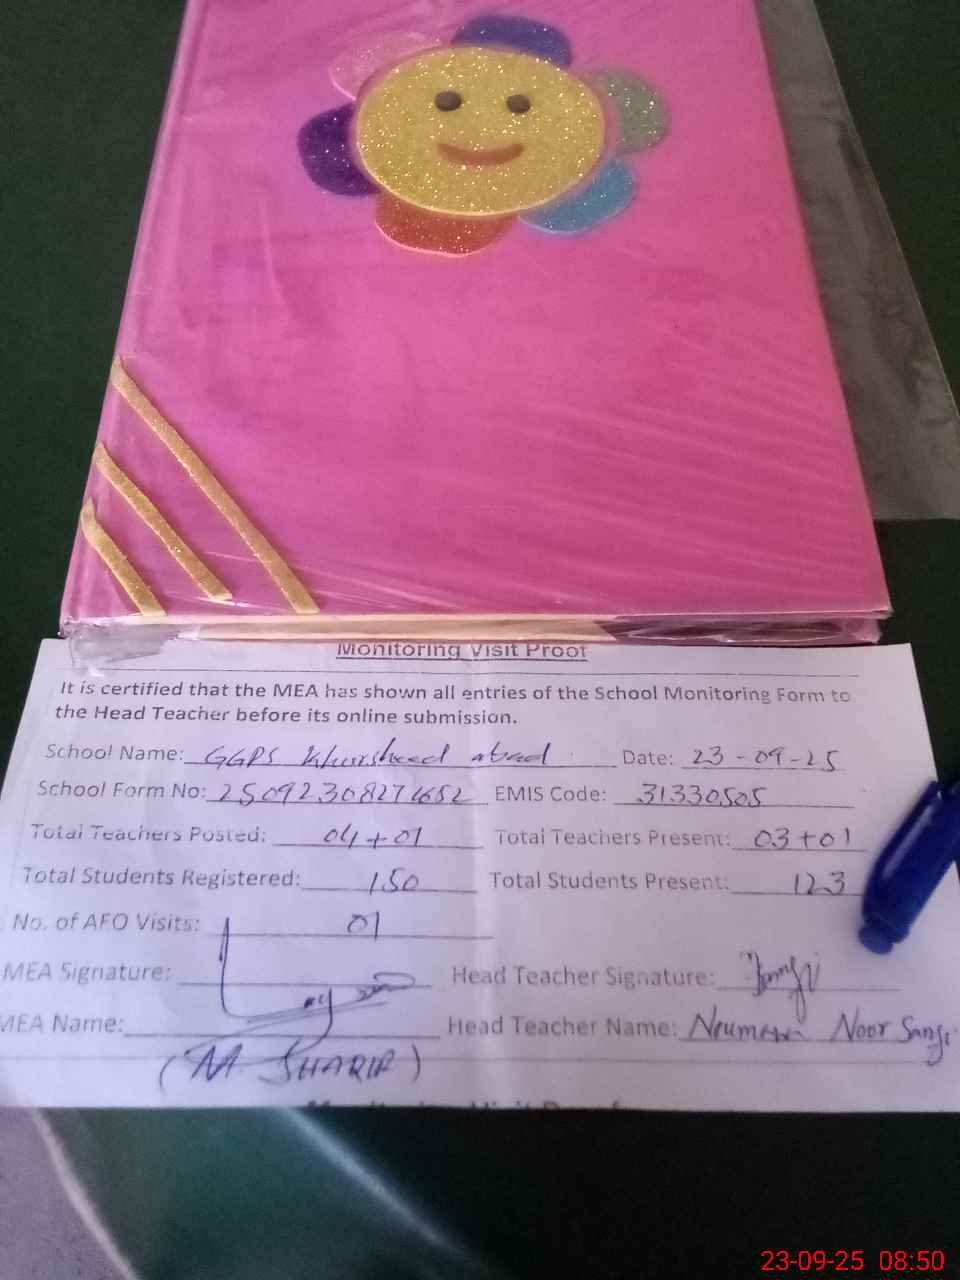 Monitoring Visit Proof
It is certified that the MEA has shown all entries of the School Monitoring Form to
the Head Teacher before its online submission.
School Name: GGPS Khursheed abad Date: 23-09-25
School Form No: EMIS Code: 31330505
Total Teachers Posted: 04+01 Total Teachers Present: 03+01
Total Students Registered: 150 Total Students Present: 123
No. of AFO Visits: 01
MEA Signature: Head Teacher Signature:
MEA Name: Head Teacher Name: Noor
(M SHARIF)
Monitoring Visit Proof
23-09-25 08:50